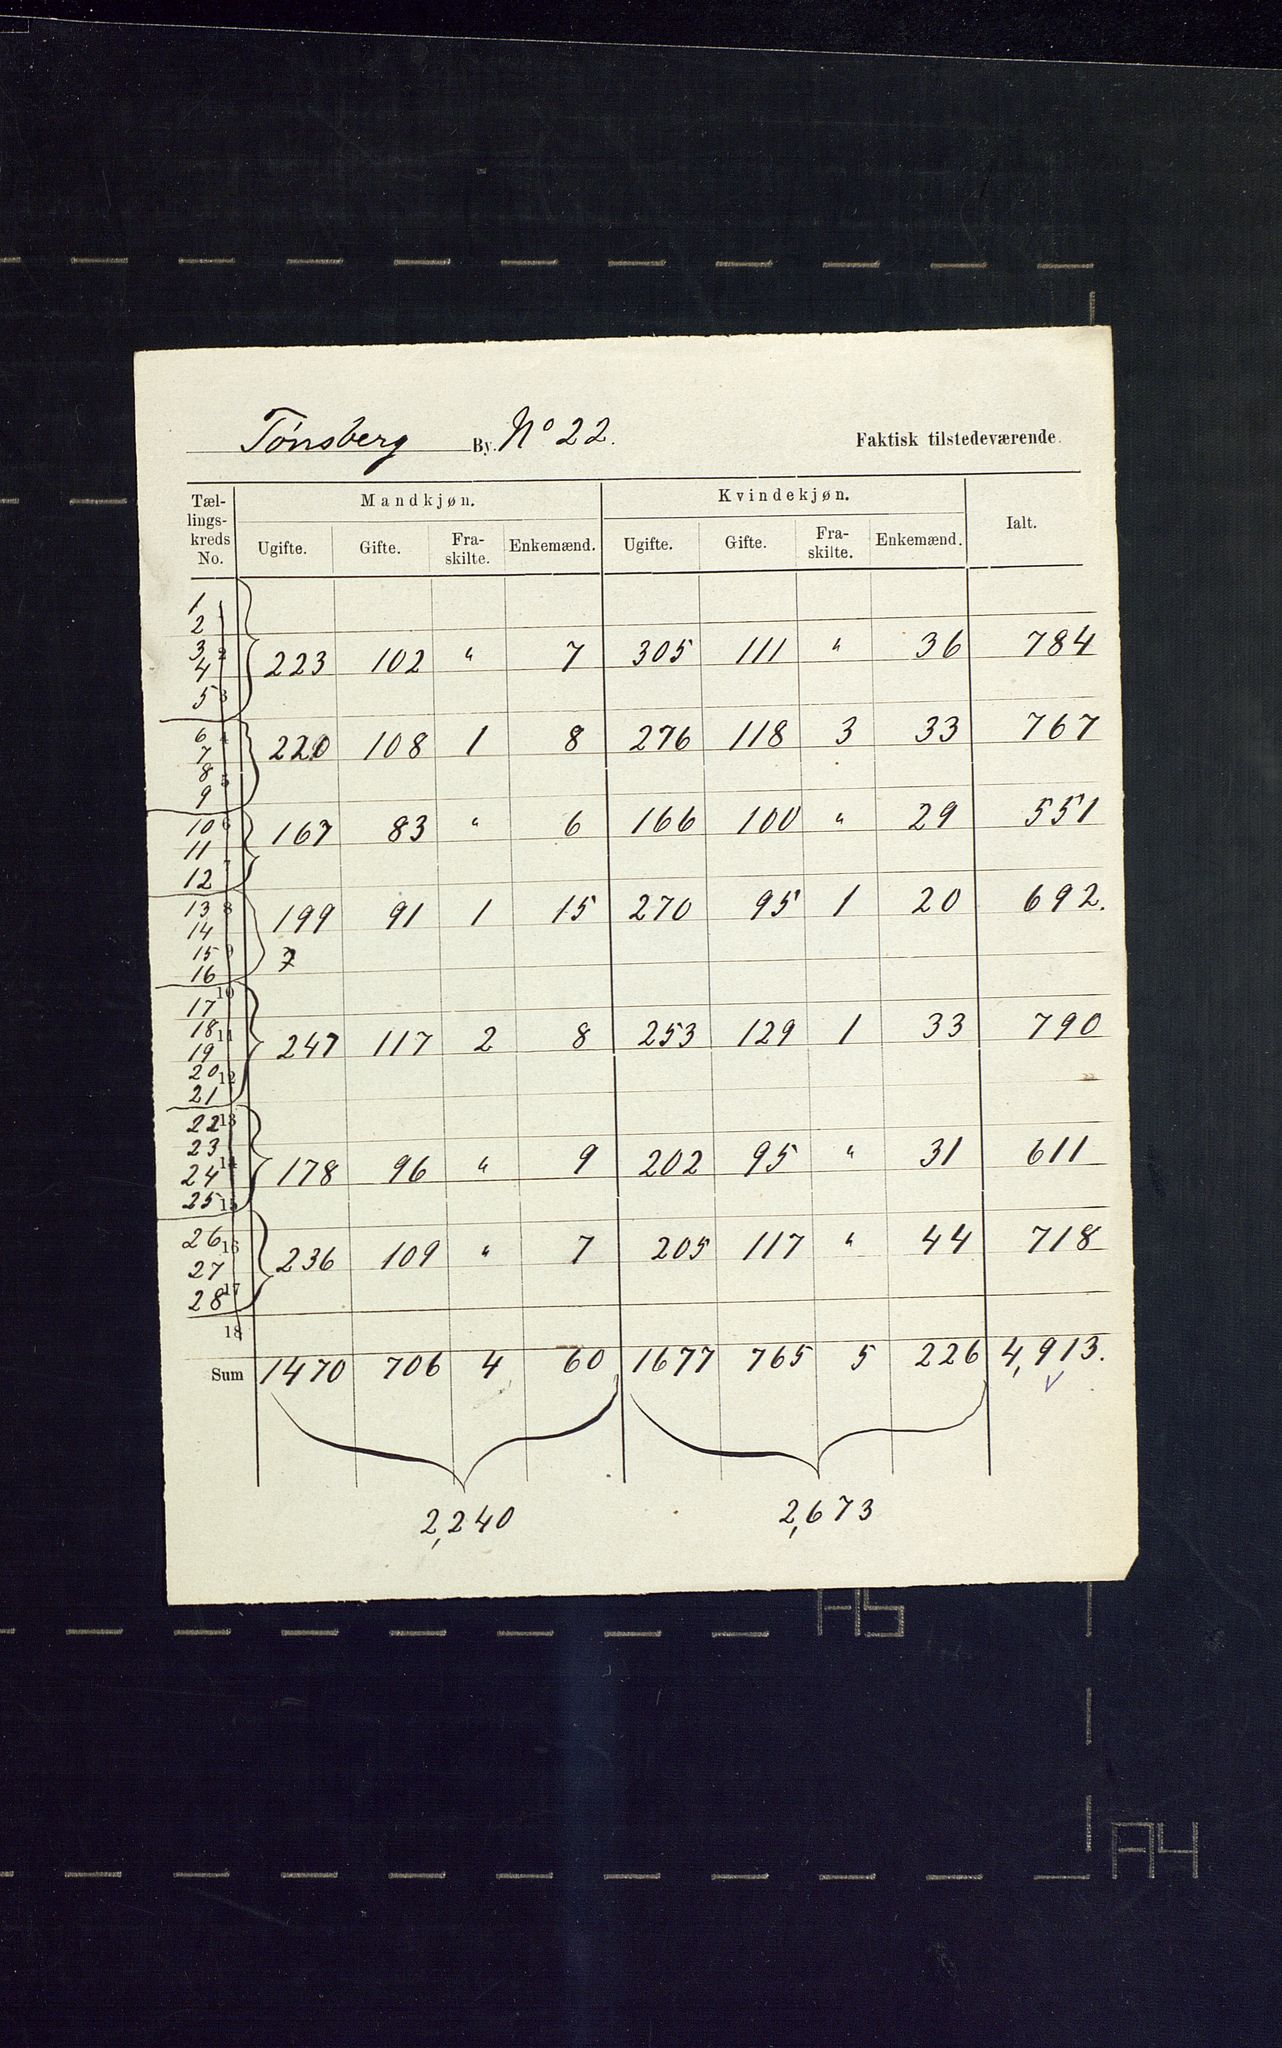 Tønsberg By. No 22. Faktisk tilstedeværende.
Tællingskreds No. Mandkjøn. Kvindekjøn. Ialt.
Ugifte. Gifte. Fraskilte. Enkemænd. Ugifte. Gifte. Fraskilte. Enkemænd.
1
2
3 2
4 223 102 " 7 305 111 " 36 784
5 3
6 4
7 220 108 1 8 276 118 3 33 767
8 5
9
10 6 167 83 " 6 166 100 " 29 551
11
12 7
13 8 199 91 1 15 270 95 1 20 692.
14
15 9 7
16
17 10
18 11
19 247 117 2 8 253 129 1 33 790
20 12
21
22 13
23
24 14 178 96 " 9 202 95 " 31 611
25 15
26 16
27 236 109 " 7 205 117 " 44 718
28 17
18
Sum 1470 706 4 60 1677 765 5 226 4,913.
2,240 2,673
A5
A4